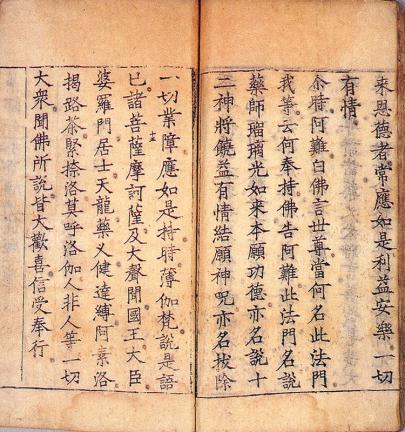 來恩德者常應如是利益安樂一切
有情
尒時阿難白佛言世尊當何名此法門
我等云何奉持佛告阿難此法門名說
藥師瑠璃光如來本願功德亦名說十
二神將饒益有情結願神呪亦名拔除
一切業障應如是持時薄伽梵說是語
十五
已諸菩薩摩訶薩及大聲聞國王大臣
婆羅門居士天龍藥义健達縛阿素洛
揭路荼緊捺洛莫呼洛伽人非人等一切
大衆聞佛所說皆大歡喜信受奉行